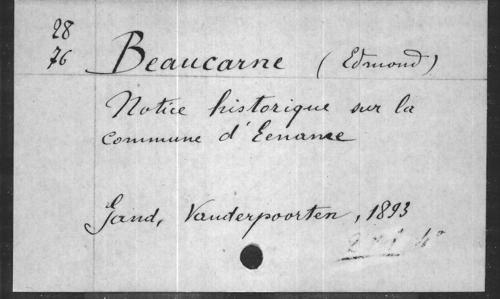 28
76
Beaucarne (Edmond)
Notice historique sur la
commune d'Eename
Gand, Vanderpoorten, 1893
4°